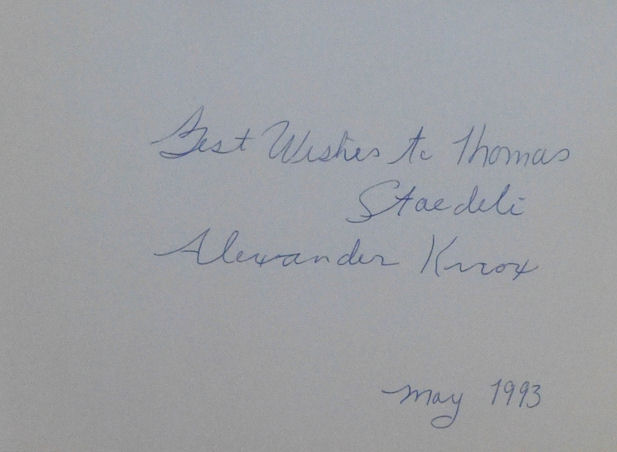 Best Wishes to Thomas
Staedeli
Alexander Knox
May 1993